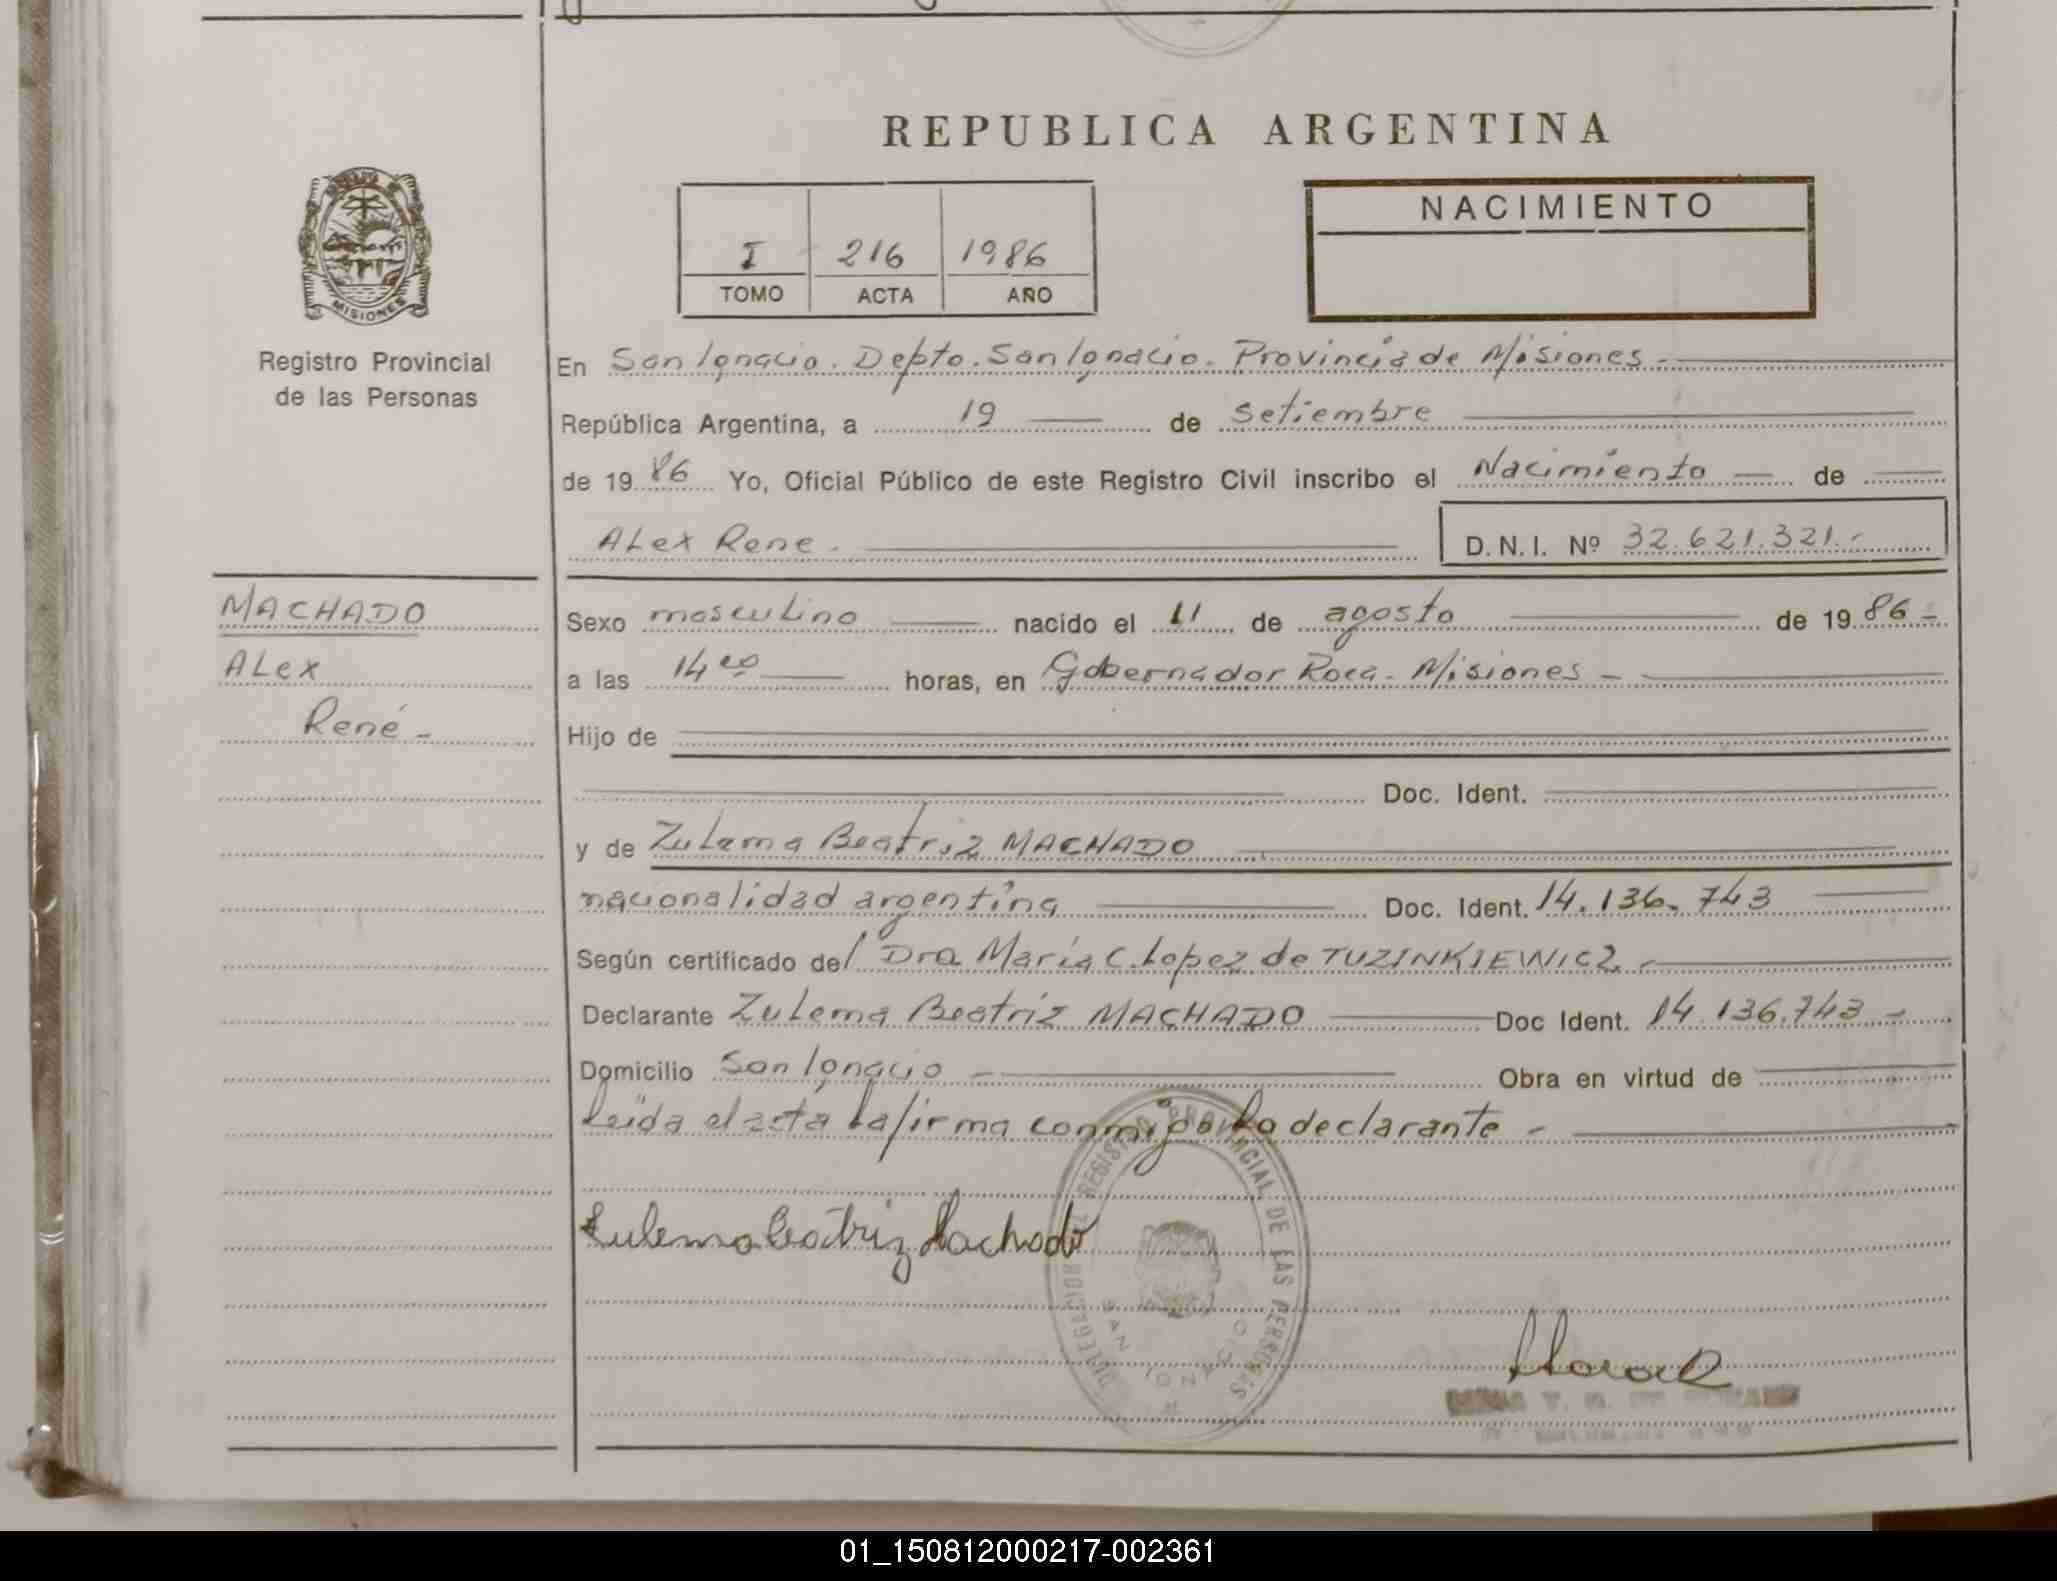 REPUBLICA ARGENTINA
NACIMIENTO
I 216 1986
TOMO ACTA AÑO
MISIONES
Registro Provincial
de las Personas
En San Ignacio. Depto. San Ignacio. Provincia de Misiones.
República Argentina, a 19 de Setiembre
de 1986 Yo, Oficial Público de este Registro Civil inscribo el Nacimiento de
ALex Rene. D.N.I. Nº 32.621.321.-
MACHADO
ALex
René -
Sexo masculino nacido el 11 de agosto de 1986-
a las 14 horas, en Gobernador Roca. Misiones -
Hijo de
Doc. Ident.
y de Zulema Beatriz MACHADO
nacionalidad argentina Doc. Ident. 14.136.743
Según certificado del Dra María C. Lopez de TUZINKIEWICZ.-
Declarante Zulema Beatriz MACHADO Doc Ident. 14.136.743 -
Domicilio San Ignacio - Obra en virtud de
Leída el acta la firma conmigo la declarante -
Zulema Beatriz Machado
DELEGACION REGISTRO PROVINCIAL DE LAS PERSONAS
SAN IGNACIO
01_150812000217-002361